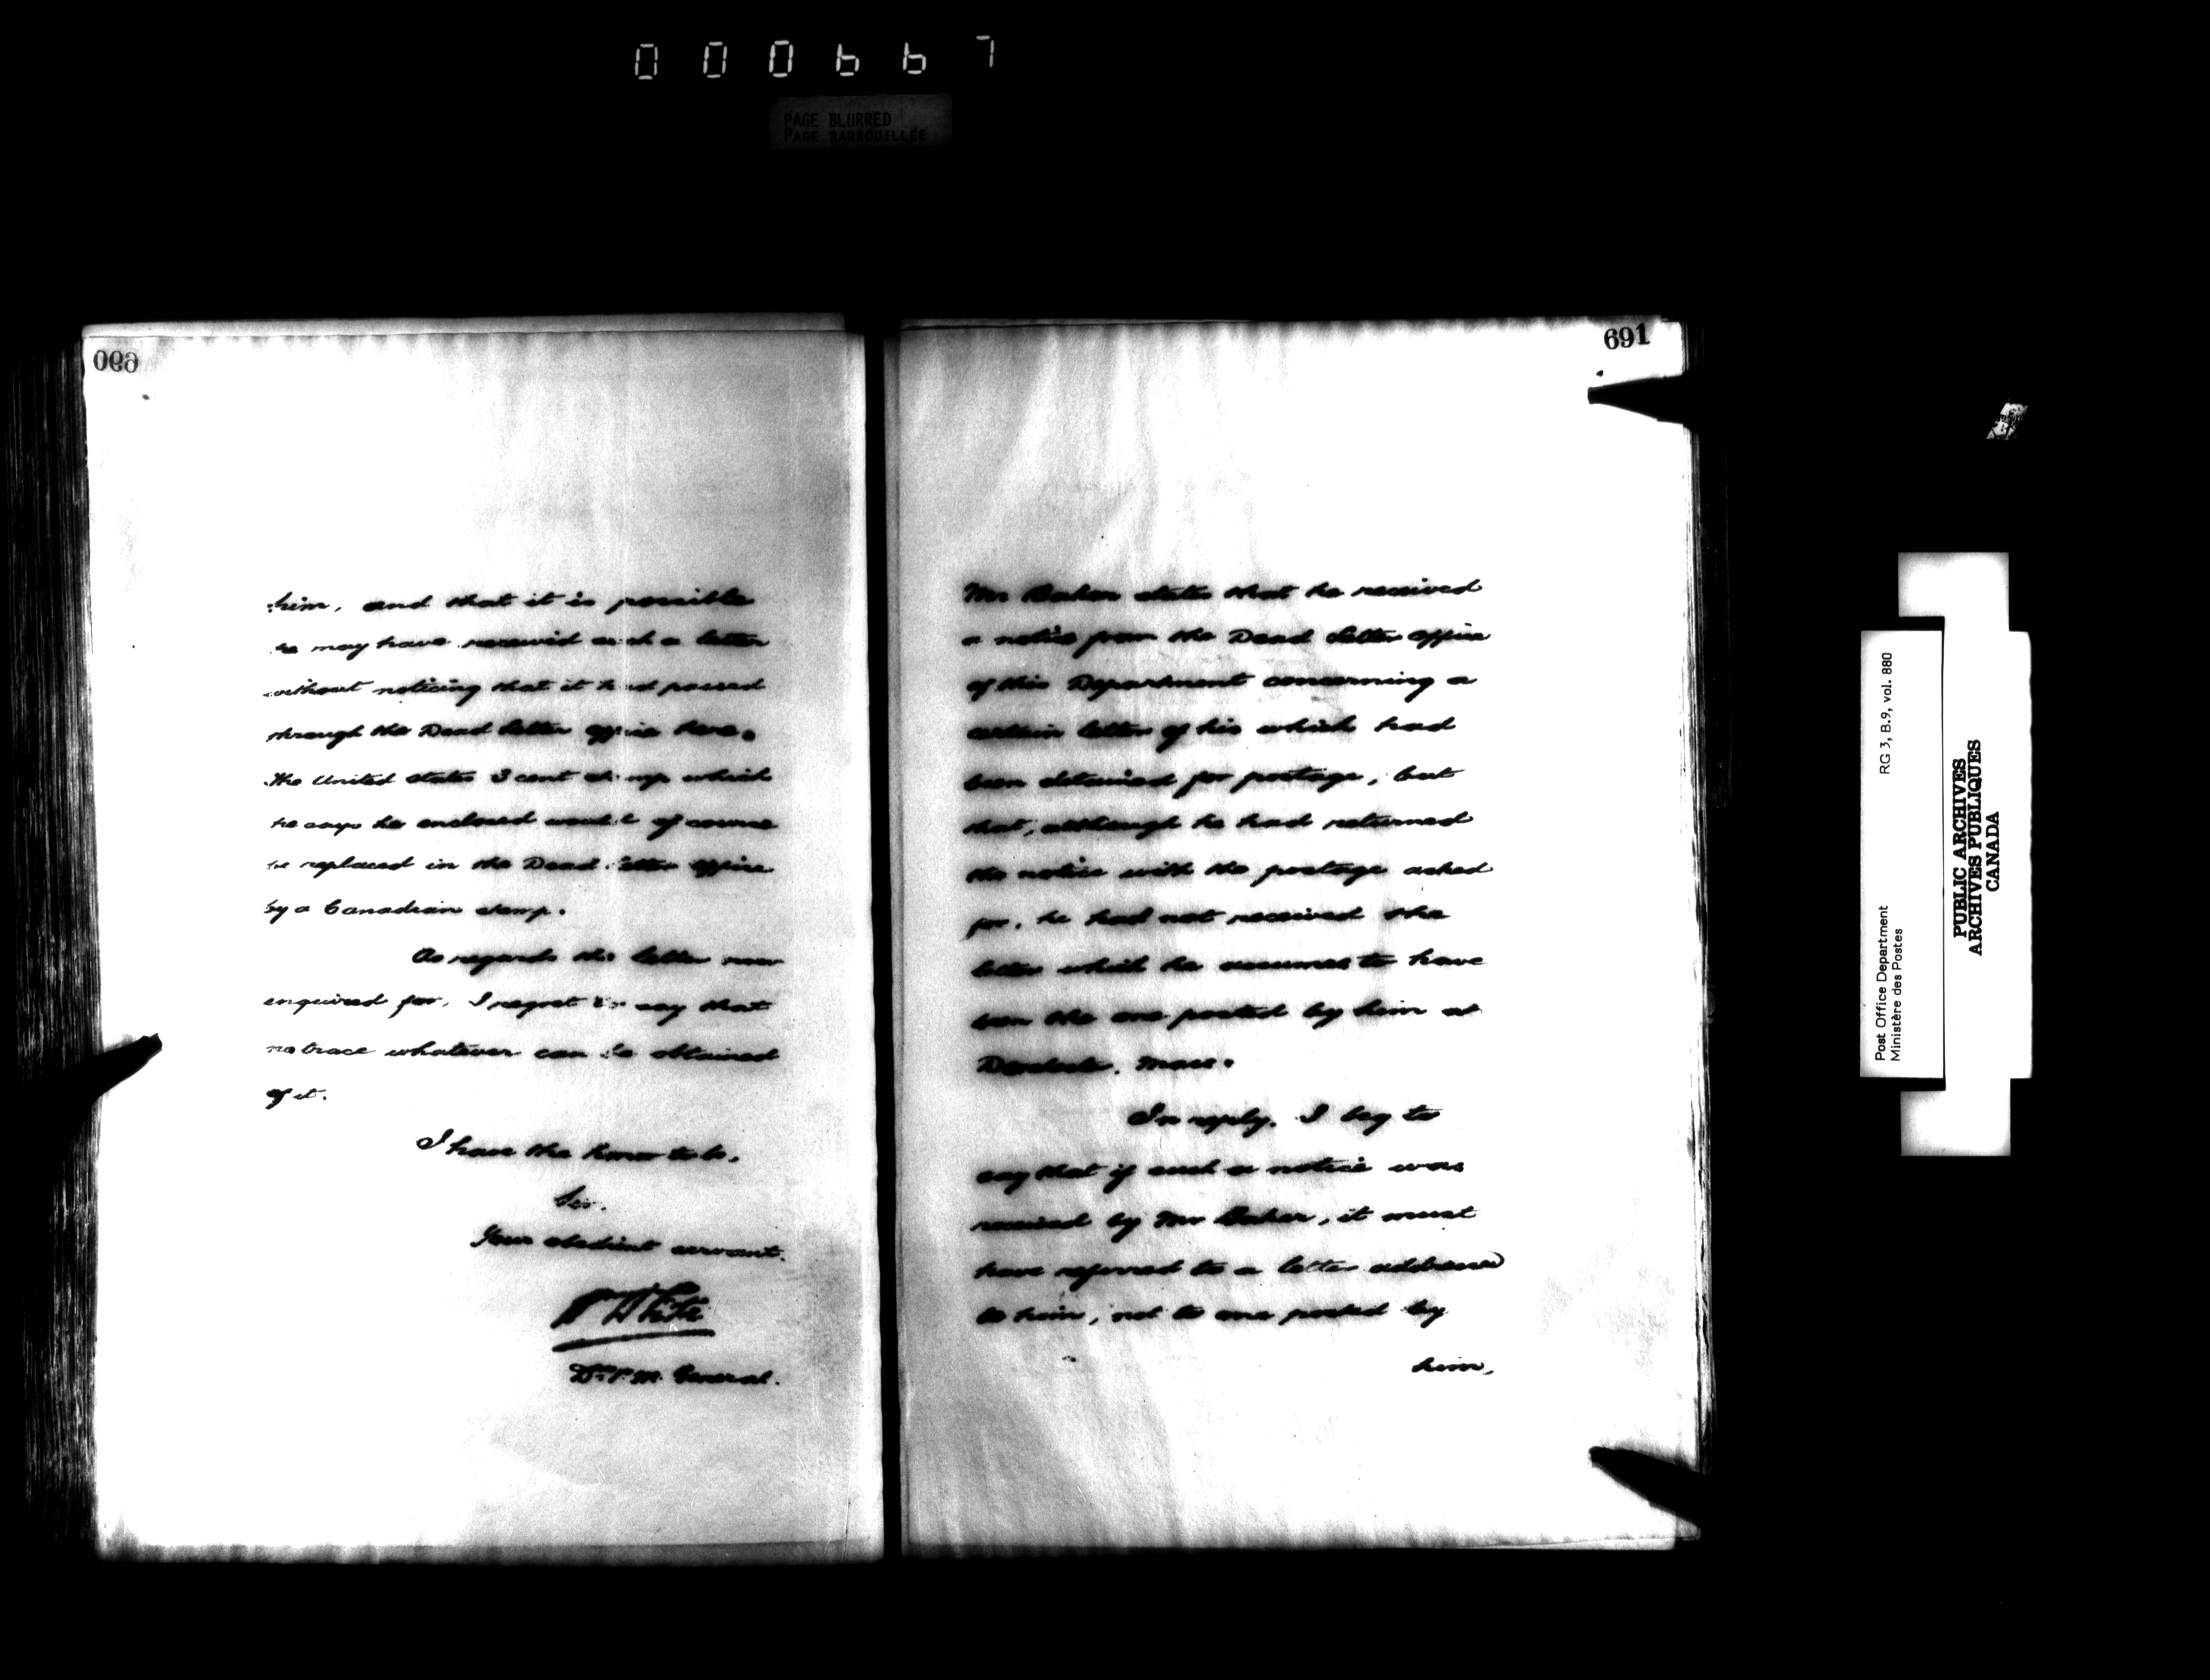 000667
PAGE BLURRED
PAGE BARBOUILLÉE
690
him, and that it is possible
he may have received such a letter
without noticing that it had passed
through the Dead letter office here.
The United States 3 cent stamp which
he says he enclosed would of course
be replaced in the Dead letter office
by a Canadian stamp.
As regards the letter now
enquired for, I regret to say that
no trace whatever can be obtained
of it.
I have the honor to be,
Sir,
Your obedient servant.
White
D. P. M. General.
691
Mr Baker states that he received
a notice from the Dead letter office
of this Department concerning a
certain letter of his which had
been detained for postage, but
that, although he had returned
the notice with the postage asked
for, he had not received the
letter which he assumes to have
been the one posted by him at
Mass.
In reply, I beg to
say that if such a notice was
received by Mr Baker, it must
have referred to a letter addressed
to him, not to one posted by
him,
Post Office Department
Ministère des Postes
RG 3, B.9, vol. 880
PUBLIC ARCHIVES
ARCHIVES PUBLIQUES
CANADA